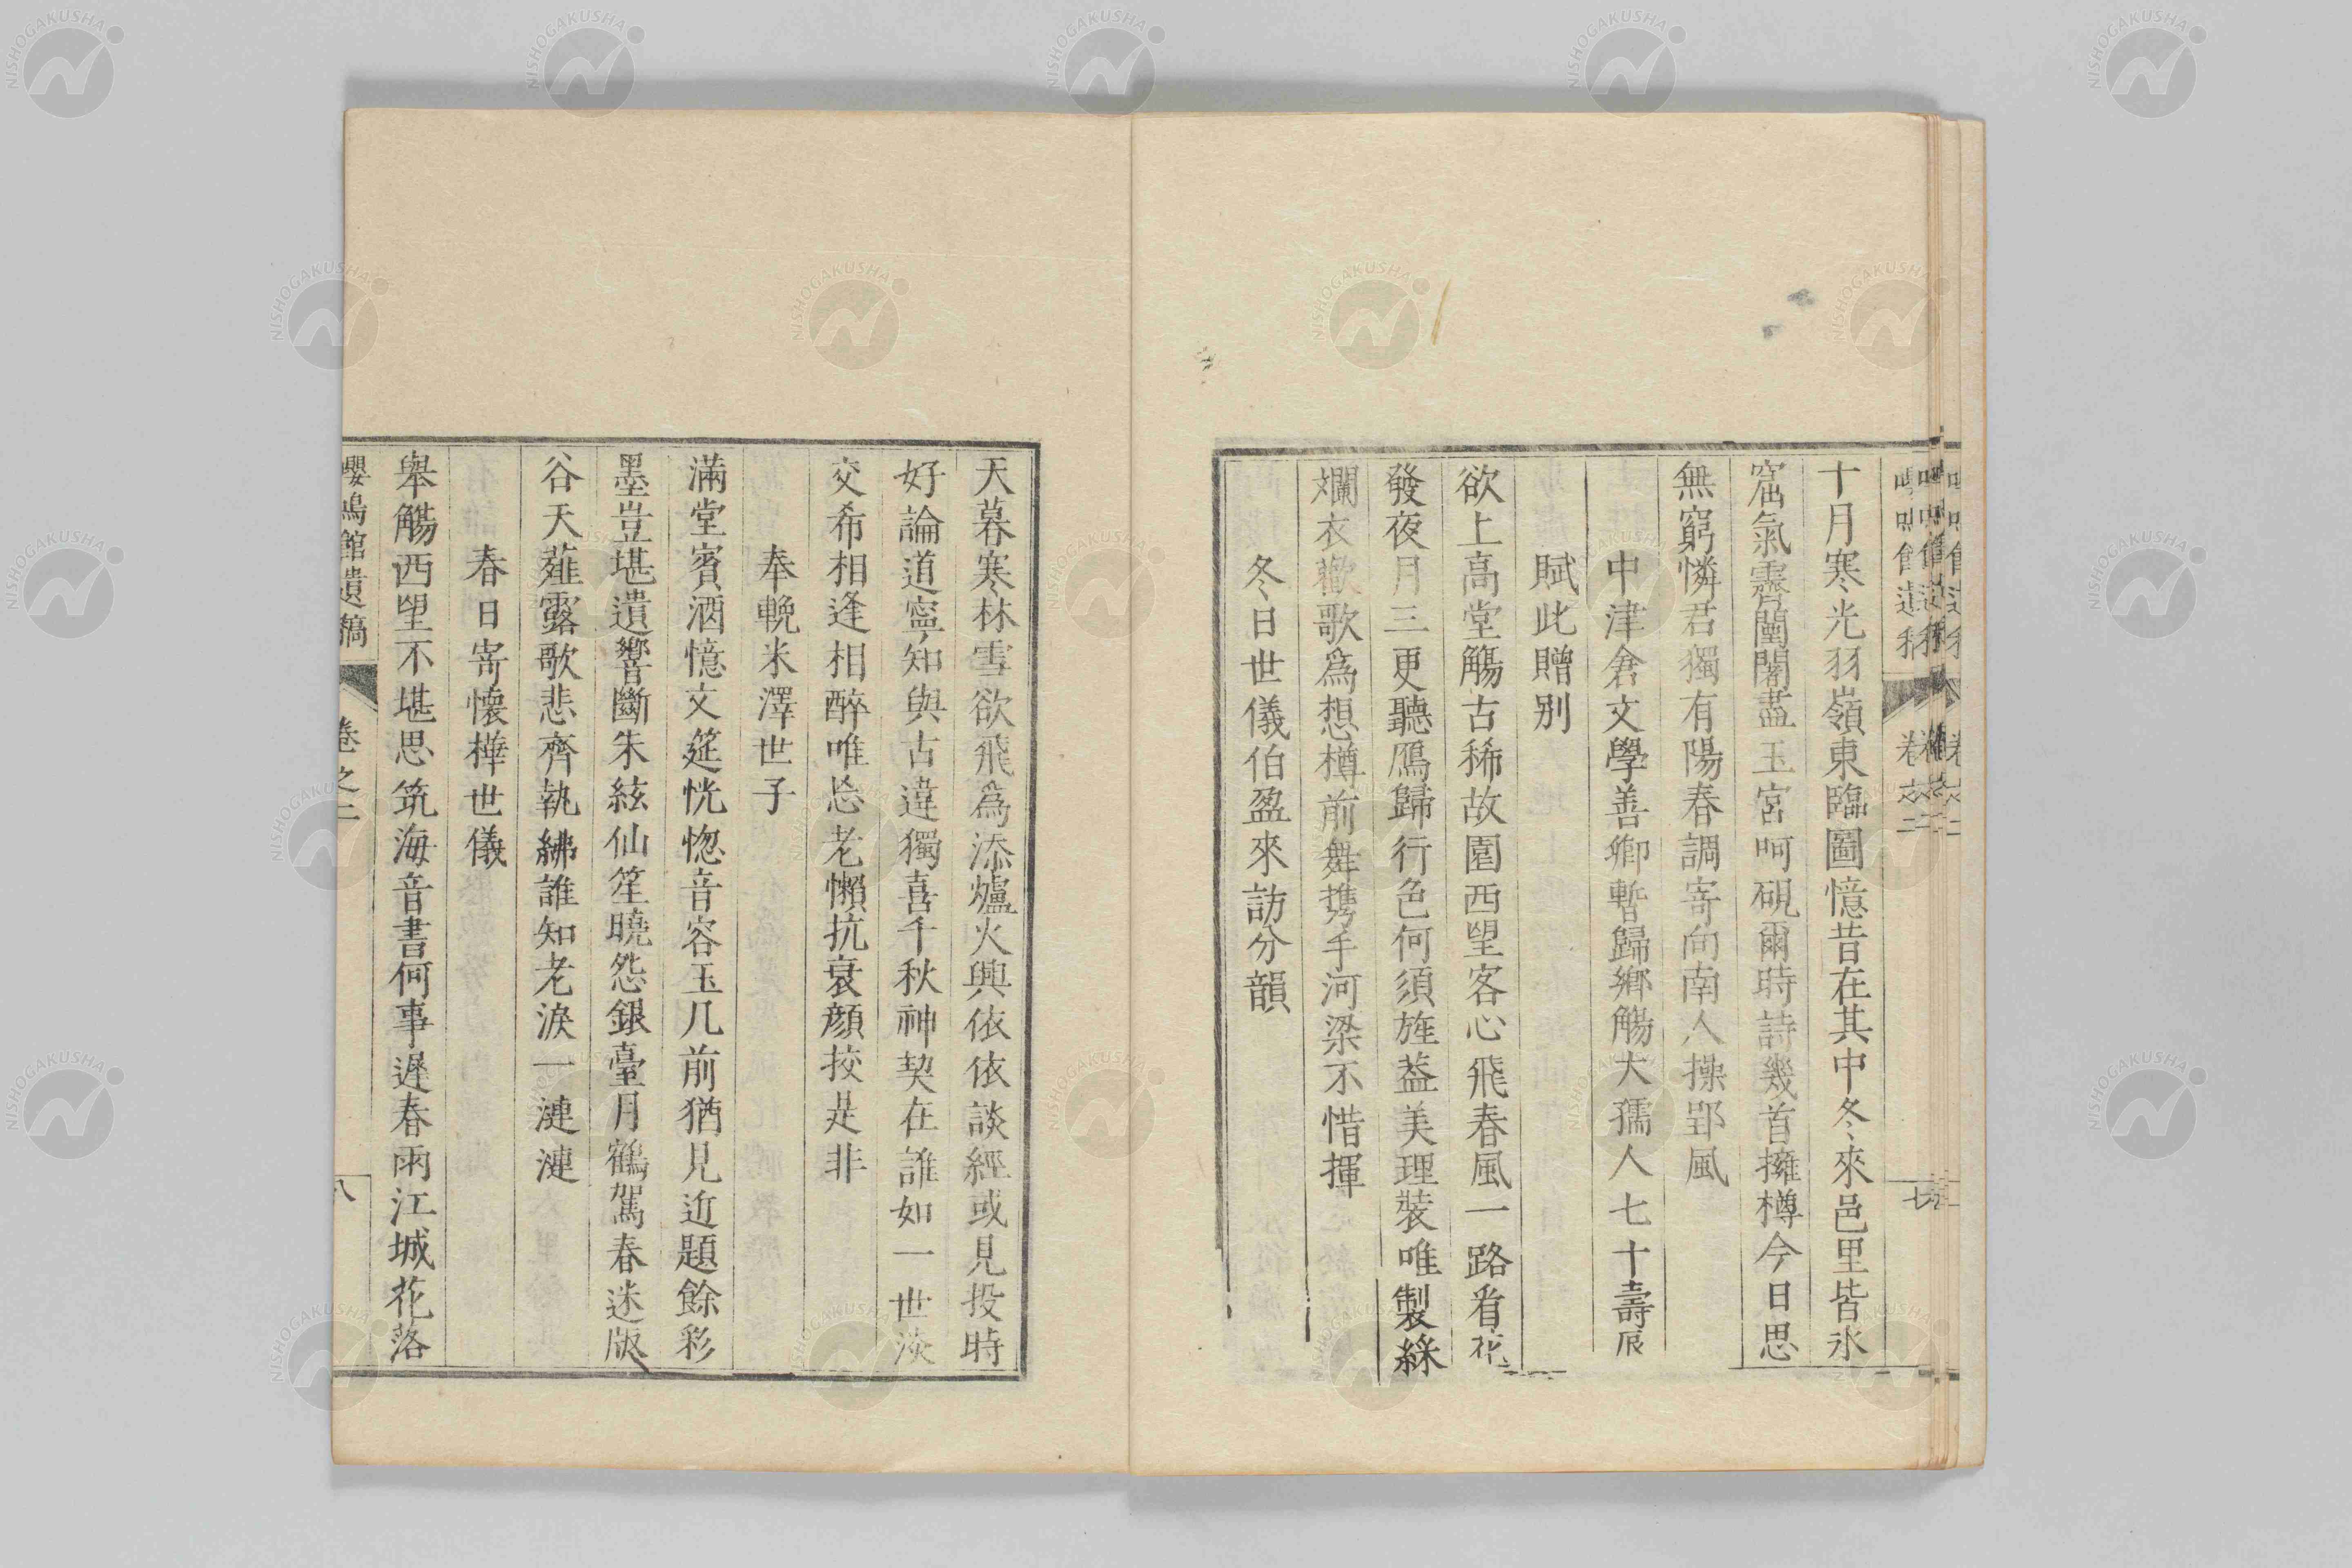 十月寒光羽嶺東臨圖憶昔在其中冬來邑里皆氷
窟氣霽闉闍盡玉宮呵硯爾時詩幾首擁樽今日思
無窮憐君獨有陽春調寄向南人操郢風
中津倉文學善卿暫歸鄉觴大孺人七十壽辰
賦此贈別
欲上高堂觴古稀故園西望客心飛春風一路看花
發夜月三更聽鴈歸行色何須旌葢美理裝唯製綵
斕衣歡歌為想樽前舞携手河梁不惜揮
冬日世儀伯盈來訪分韻
天暮寒林雪欲飛為添爐火興依依談經或見投時
好論道寧知與古違獨喜千秋神契在誰如一世淡
交希相逢相醉唯忘老懶抗衰顔挍是非
奉輓米澤世子
滿堂賓酒憶文筵恍惚音容玉几前猶見近題餘彩
墨豈堪遺響斷朱絃仙笙曉怨銀臺月鶴駕春迷版
谷天薤露歌悲齊執紼誰知老淚一漣漣
春日寄懷樺世儀
舉觴西望不堪思筑海音書何事遲春雨江城花落
嚶鳴館遺稿 卷之二 八